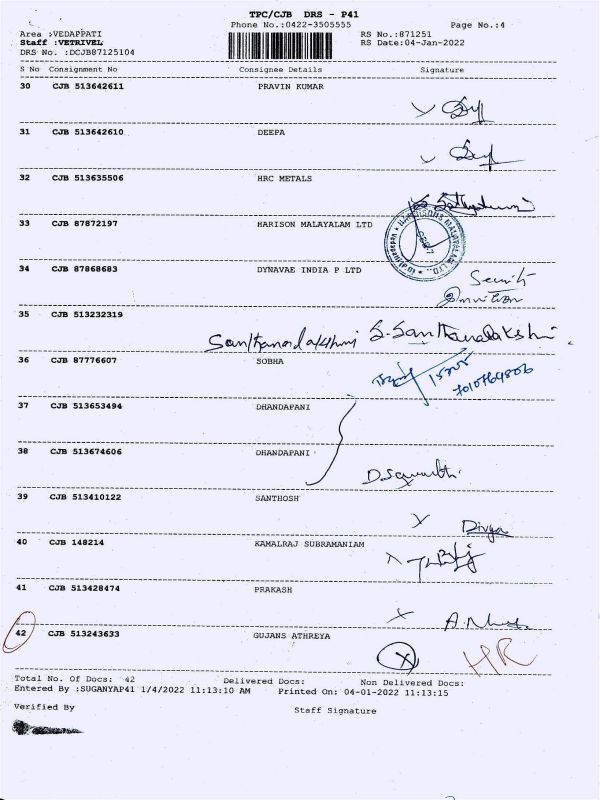 TPC/CJB DRS - P41
Phone No.:0422-3505555 Page No.:4
Area :VEDAPPATI RS No.:871251
Staff :VETRIVEL RS Date:04-Jan-2022
DRS No. :DCJB87125104
S No Consignment No Consignee Details Signature
30 CJB 513642611 PRAVIN KUMAR
31 CJB 513642610 DEEPA
32 CJB 513635506 HRC METALS
33 CJB 87872197 HARISON MALAYALAM LTD
34 CJB 87868683 DYNAVAE INDIA P LTD
35 CJB 513232319
S-Santhanalakshmi
36 CJB 87776607 SOBHA
7010764806
37 CJB 513653494 DHANDAPANI
38 CJB 513674606 DHANDAPANI
39 CJB 513410122 SANTHOSH
Divya
40 CJB 148214 KAMALRAJ SUBRAMANIAM
41 CJB 513428474 PRAKASH
42 CJB 513243633 GUJANS ATHREYA
X HR
Total No. Of Docs: 42 Delivered Docs: Non Delivered Docs:
Entered By :SUGANYAP41 1/4/2022 11:13:10 AM Printed On: 04-01-2022 11:13:15
Verified By Staff Signature